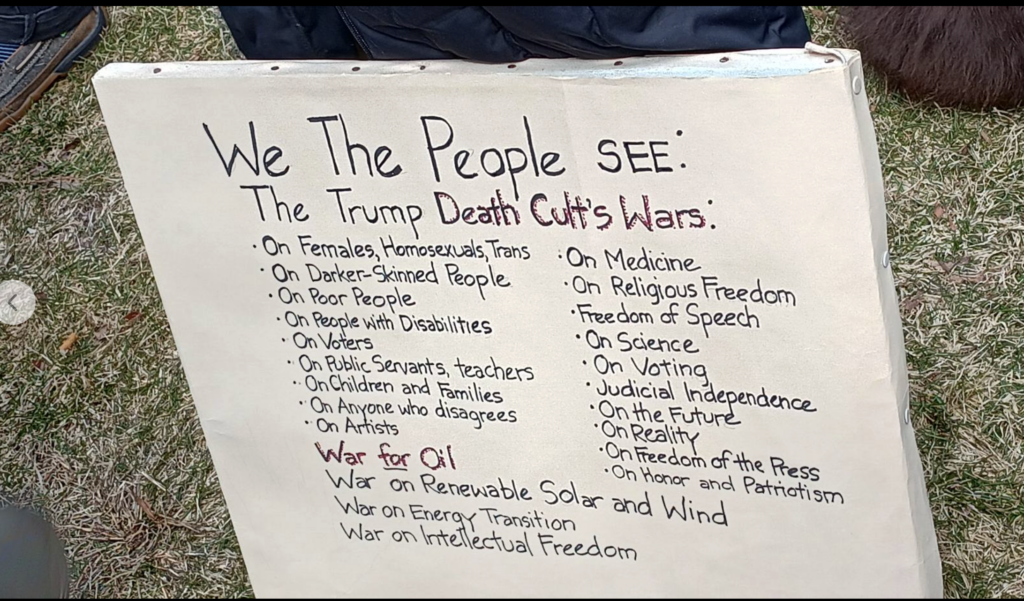 We The People SEE:
The Trump Death Cult's Wars:
· On Females, Homosexuals, Trans
· On Darker-Skinned People
· On Poor People
· On People with Disabilities
· On Voters
· On Public Servants, teachers
· On Children and Families
· On Anyone who disagrees
· On Artists
· On Medicine
· On Religious Freedom
· Freedom of Speech
· On Science
· On Voting
· Judicial Independence
· On the Future
· On Reality
· On Freedom of the Press
· On Honor and Patriotism
War for Oil
War on Renewable Solar and Wind
War on Energy Transition
War on Intellectual Freedom